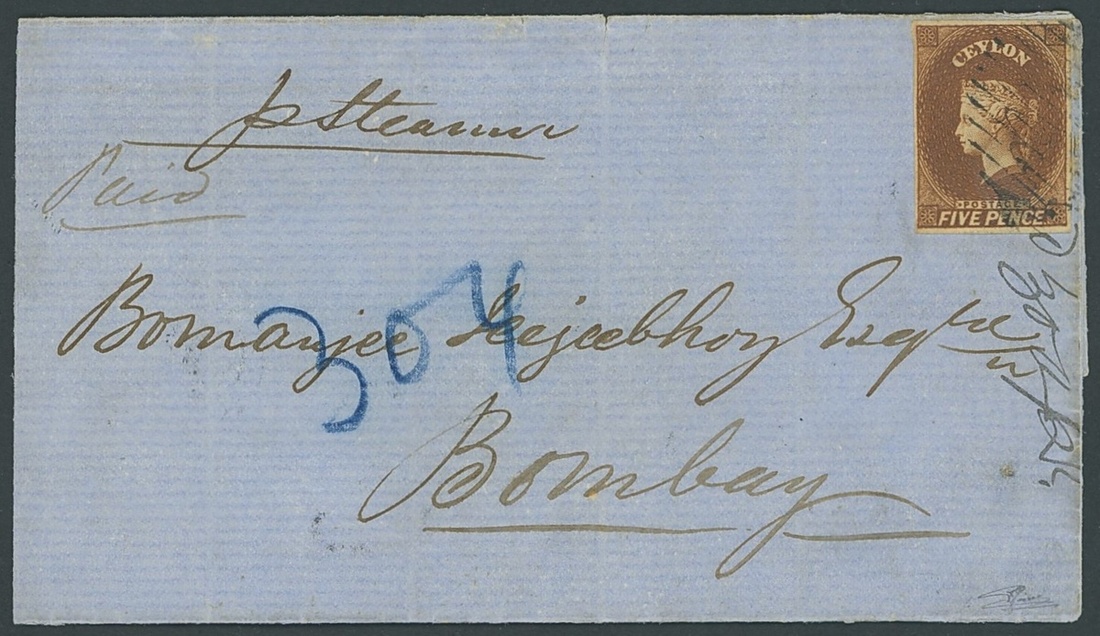 p Steamer
Paid
CEYLON
POSTAGE
FIVE PENCE
304
Bomanjee Jeejeebhoy Esqre
Bombay